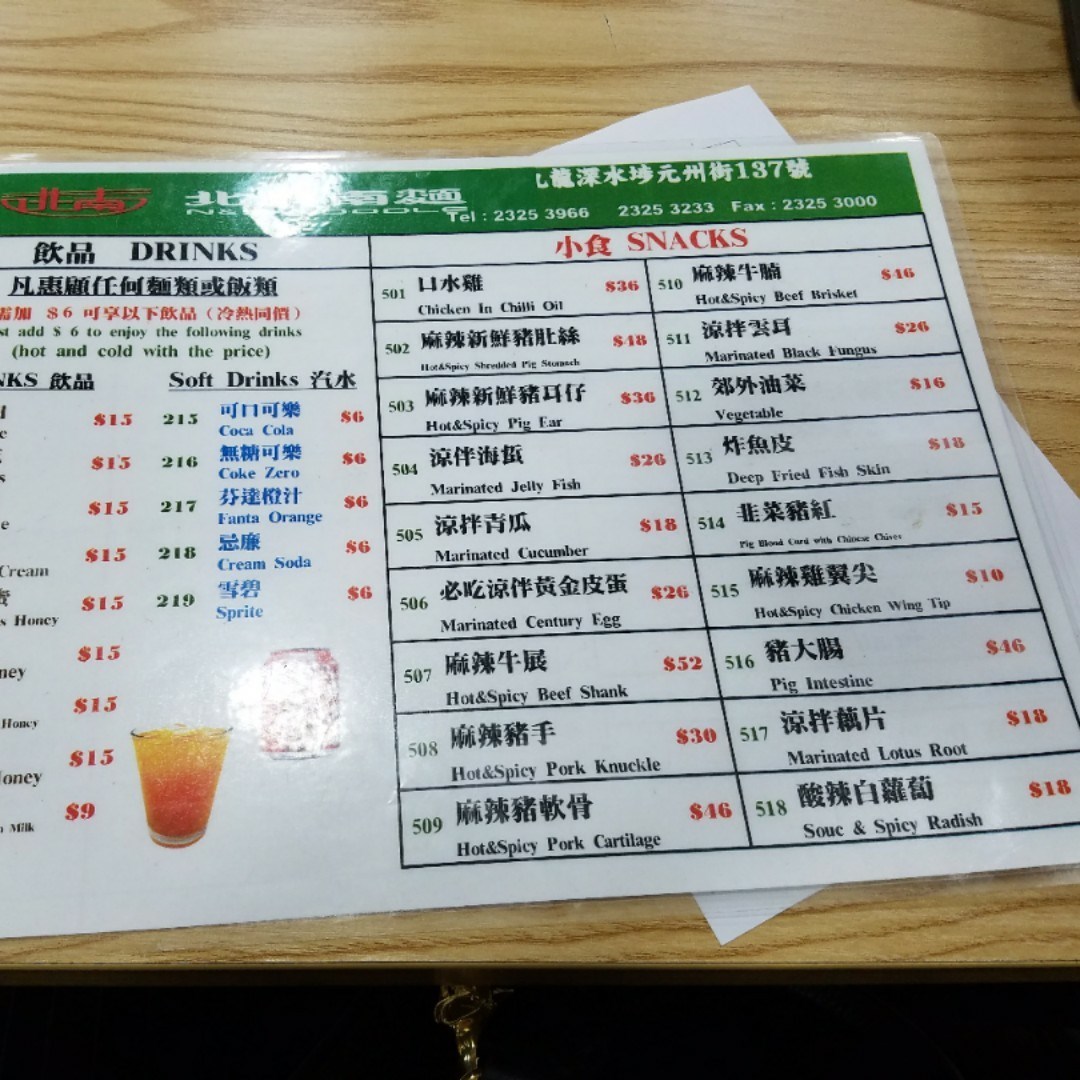 九龍深水埗元州街137號
Tel : 2325 3966 2325 3233 Fax : 2325 3000
飲品 DRINKS
凡惠顧任何麵類或飯類
需加 $6 可享以下飲品（冷熱同價）
add $ 6 to enjoy the following drinks
(hot and cold with the price)
飲品
$15
$15
$15
Cream $15
Honey $15
$15
Honey $15
$15
$9
Milk
Soft Drinks 汽水
215 可口可樂 $6
Coca Cola
216 無糖可樂 $6
Coke Zero
217 芬達橙汁 $6
Fanta Orange
218 忌廉 $6
Cream Soda
219 雪碧 $6
Sprite
小食 SNACKS
501 口水雞 $36
Chicken In Chilli Oil
502 麻辣新鮮豬肚絲 $48
Hot&Spicy Shredded Pig Stomach
503 麻辣新鮮豬耳仔 $36
Hot&Spicy Pig Ear
504 涼伴海蜇 $26
Marinated Jelly Fish
505 涼拌青瓜 $18
Marinated Cucumber
506 必吃涼伴黃金皮蛋 $26
Marinated Century Egg
507 麻辣牛展 $52
Hot&Spicy Beef Shank
508 麻辣豬手 $30
Hot&Spicy Pork Knuckle
509 麻辣豬軟骨 $46
Hot&Spicy Pork Cartilage
510 麻辣牛腩 $46
Hot&Spicy Beef Brisket
511 涼拌雲耳 $26
Marinated Black Fungus
512 郊外油菜 $16
Vegetable
513 炸魚皮 $18
Deep Fried Fish Skin
514 韭菜豬紅 $15
Pig Blood Curd with Chinese Chives
515 麻辣雞翼尖 $10
Hot&Spicy Chicken Wing Tip
516 豬大腸 $46
Pig Intestine
517 涼拌藕片 $18
Marinated Lotus Root
518 酸辣白蘿蔔 $18
Souc & Spicy Radish